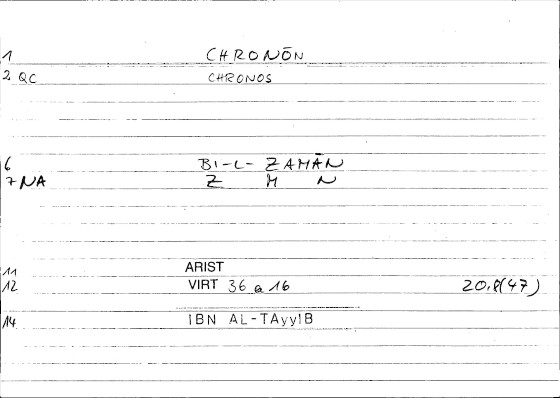 1 CHRONŌN
2 QC CHRONOS
6 BI-L-ZAMĀN
7 NA Z M N
11 ARIST
12 VIRT 36 a 16 20,8(47)
14 IBN AL-TAyyIB